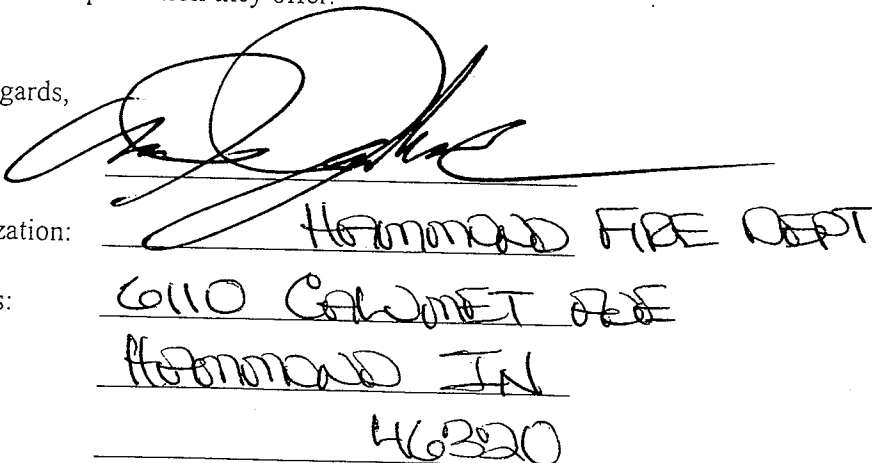 they offer.
gards,
zation: HAMMOND FIRE DEPT
s: 6110 CALUMET AVE
HAMMOND IN
46320